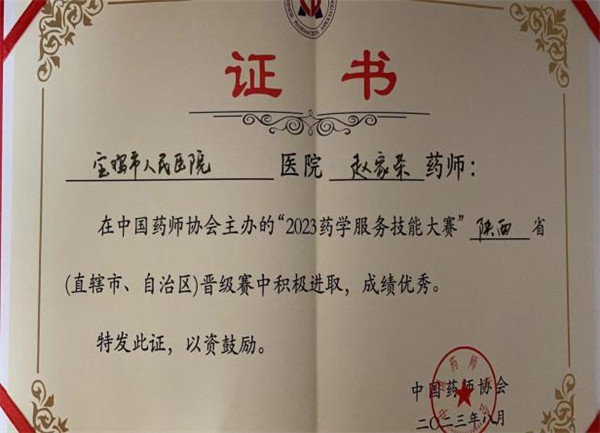 证书
宝鸡市人民医院 医院 赵家荣 药师：
在中国药师协会主办的“2023药学服务技能大赛” 陕西 省
(直辖市、自治区)晋级赛中积极进取，成绩优秀。
特发此证，以资鼓励。
中国药师协会
二〇二三年八月